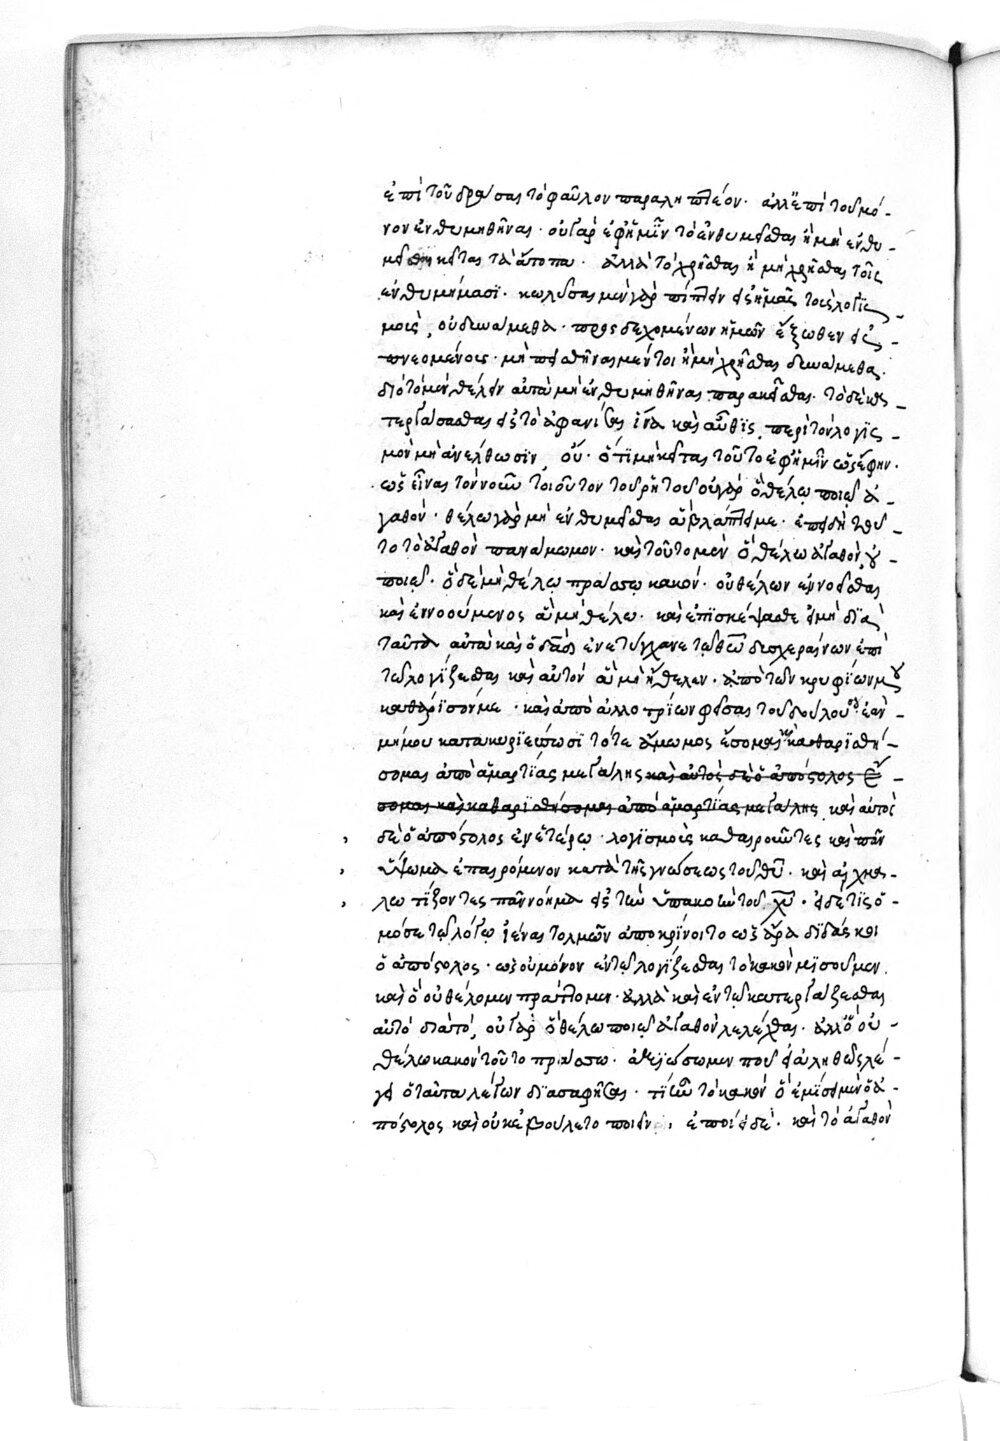 ἐπὶ τοῦ δρᾶσαι τὸ φαῦλον παραληπτέον· ἀλλ' ἐπὶ τοῦ μό-
νον ἐνθυμηθῆναι· οὐ γὰρ ἐφ' ἡμῖν τὸ ἐνθυμεῖσθαι ἢ μὴ ἐνθυ-
μεῖσθαι κεῖται τὰ ἄτοπα· ἀλλὰ τὸ χρῆσθαι ἢ μὴ χρῆσθαι τοῖς
ἐνθυμήμασϊ· κωλῦσαι μὲν γὰρ πίπτειν εἰς ἡμᾶς τοὺς λογϊς-
μοὺς, οὐ δυνάμεθα· προσδεχομένων ἡμῶν ἔξωθεν εἰς-
πνεομένους· μὴ πεισθῆναι μέντοι ἢ μὴ χρῆσθαι δυνάμεθα·
διὸ τὸ μὲν θέλειν αὐτὰ μὴ ἐνθυμηθῆναι παρακεῖσθαι· τὸ δὲ κα-
τεργάσασθαι εἰς τὸ ἀφανίσαι ἵνα καὶ αὖθϊς περὶ τὸν λογϊς-
μὸν μὴ ἀνέλθωσϊν, οὔ· ὅτϊ μὴ κεῖται τοῦτο ἐφ' ἡμῖν ὡς ἔφην·
ὡς εἶναι τὸν νοῦν τοιοῦτον τοῦ ῥητοῦ οὐ γὰρ ὃ θέλω ποιῶ ἀ-
γαθόν· θέλω γὰρ μὴ ἐνθυμεῖσθαι ἃ βλάπτει με· ἐπειδὴ τοῦ-
το τὸ ἀγαθὸν πανάμωμον· καὶ τοῦτο μὲν ὃ θέλω ἀγαθὸν, οὐ
ποιῶ· ὃ δὲ μὴ θέλω πράσσω κακόν· οὐ θέλων ἐννοεῖσθαι
καὶ ἐννοούμενος ἃ μὴ θέλω· καὶ ἐπϊσκέψασθε εἰ μὴ δϊὰ
ταῦτα αὐτὰ καὶ ὁ δαδ ἐνετύγχανε τῶ θεῶ δυσχεραίνων ἐπὶ
τῶ λογίζεσθαι καὶ αὐτὸν ἃ μὴ ἤθελεν· ἀπὸ τῶν κρυφίων μου
καθάρϊσόν με· καὶ ἀπὸ ἀλλοτρίων φεῖσαι τοῦ δούλου σου ἐὰν
μή μου κατακυρϊεύσωσϊ τότε ἄμωμος ἔσομαι καὶ καθαρϊσθή-
σομαι ἀπὸ ἁμαρτΐας μεγάλης καὶ αὐτὸς δὲ ὁ ἀπόστολος
σομαι καὶ καθαρϊσθήσομαι ἀπὸ ἁμαρτΐας μεγάλης, καὶ αὐτὸς
δὲ ὁ ἀπόστολος ἐν ἑτέρω· λογϊσμοὺς καθαιροῦντες καὶ πᾶν
ὕψωμα ἐπαιρόμενον κατὰ τῆς γνώσεως τοῦ θῦ· καὶ αἰχμα-
λωτίζοντες πᾶν νόημα εἰς τὴν ὑπακοὴν τοῦ χῦ· εἰ δέ τϊς ὁ-
μόσε τῶ λόγω ἰέναι τολμῶν ἀποκρίνοιτο ὡς ἄρα δϊδάσκει
ὁ ἀπόστολος· ὡς οὐ μόνον ἐν τῶ λογίζεσθαι τὸ κακὸν μϊσοῦμεν
καὶ ὃ οὐ θέλομεν πράττομεν· ἀλλὰ καὶ ἐν τῶ κατεργάζεσθαι
αὐτὸ διὰ τὸ, οὐ γὰρ ὃ θέλω ποιῶ ἀγαθὸν λελέχθαι· ἀλλ' ὃ οὐ
θέλω κακὸν τοῦτο πράσσω· ἀξιώσωμεν που εἰ ἀληθῶς λέ-
γει ὁ ταῦτα λέγων δϊασαφῆσαι· τί ἦν τὸ κακὸν ὃ ἐμίσει μὲν ὁ ἀ-
πόστολος καὶ οὐκ ἐβούλετο ποιεῖν, ἐποίει δέ· καὶ τὸ ἀγαθὸν